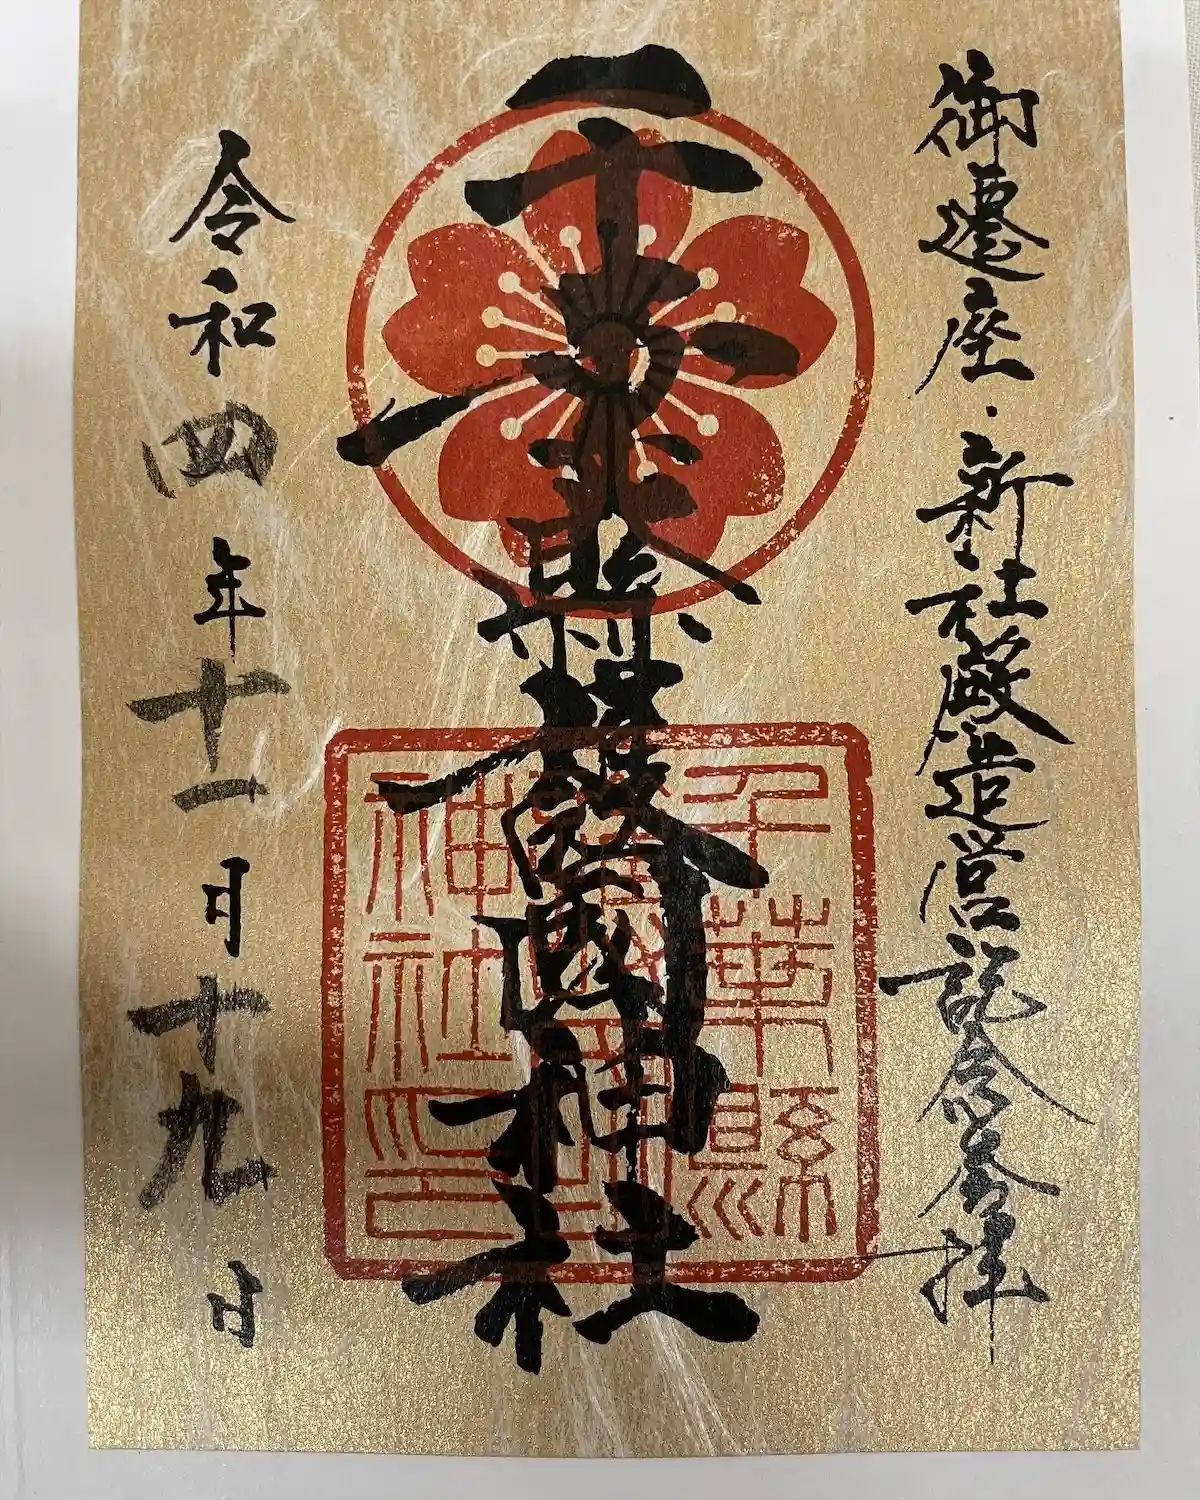 御遷座・新社殿造営記念参拝
千葉縣護國神社
千葉縣
護國
神社印
令和四年十一月十九日